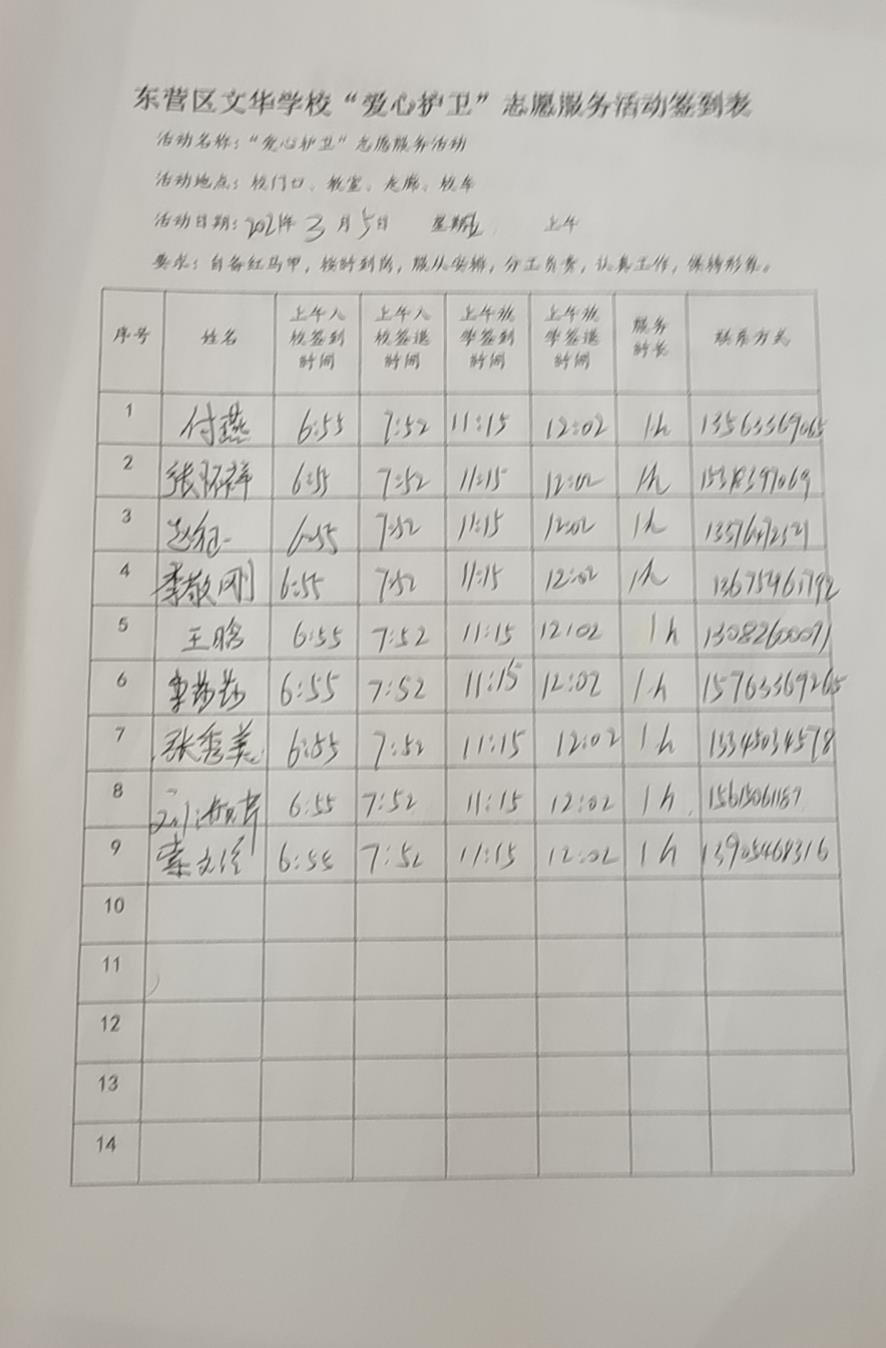 东营区文华学校“爱心护卫”志愿服务活动签到表
活动名称：“爱心护卫”志愿服务活动
活动地点：校门口、教室、走廊、校车
活动日期：2021年 3 月 5 日 星期五 上午
要求：自备红马甲，按时到岗，服从安排，分工负责，认真工作，保持形象。
序号 姓名 上午入校签到时间 上午入校签退时间 上午放学签到时间 上午放学签退时间 服务时长 联系方式
1 付燕 6:55 7:52 11:15 12:02 1h 13563369065
2 张怀祥 6:55 7:52 11:15 12:02 1h
3 6:55 7:52 11:15 12:02 1h
4 李敬刚 6:55 7:52 11:15 12:02 1h
5 王晗 6:55 7:52 11:15 12:02 1h
6 6:55 7:52 11:15 12:02 1h 15763369265
7 张秀美 6:55 7:52 11:15 12:02 1h 13345034578
8 6:55 7:52 11:15 12:02 1h 15615061187
9 6:55 7:52 11:15 12:02 1h 13905468316
10
11
12
13
14